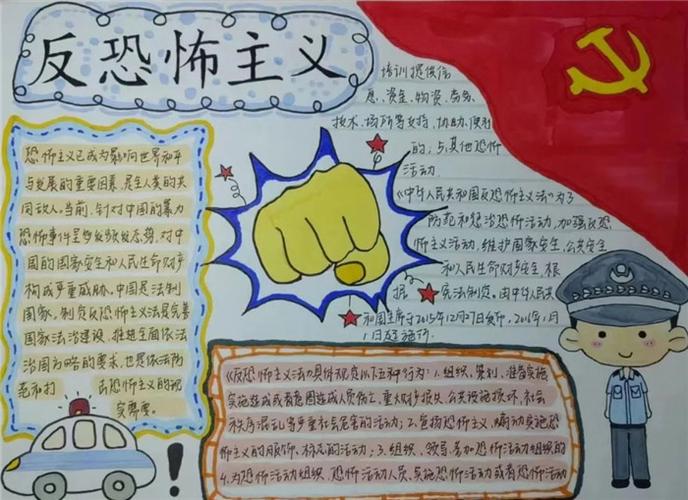 反恐怖主义
恐怖主义已成为影响世界和平
与发展的重要因素,是全人类的共
同敌人。当前,针对中国的暴力
恐怖事件呈多发频发态势,对中
国的国家安全和人民生命财产
构成严重威胁,中国是法制
国家,制定反恐怖主义法是完善
国家法治建设、推进全面依法
治国方略的要求,也是依法防
范和打 击恐怖主义的现
实需要。
培训提供信
息、资金、物资、劳务、
技术、场所等支持、协助、便利
的;5、其他恐怖
活动
《中华人民共和国反恐怖主义法》为了
防范和惩治恐怖活动,加强反恐
怖主义活动,维护国家安全、公共安全
和人民生命财产安全,根
据 宪法制定。由中华人民共
和国主席于2015年12月27日发布,2016年1月
1日起施行。
《反恐怖主义法》具体规范以下五种行为:1、组织、策划、准备实施
实施造成或者意图造成人员伤亡、重大财产损失、公共设施损坏、社会
秩序混乱等严重社会危害的活动;2、宣扬恐怖主义,煽动实施恐
怖主义的服饰、标志的活动;3、组织、领导、参加恐怖活动组织的
4、为恐怖活动组织、恐怖活动人员、实施恐怖活动或者恐怖活动